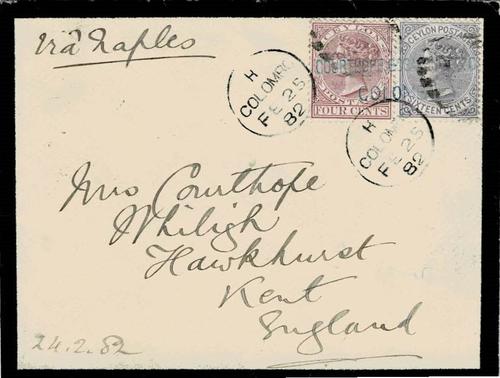 via Naples
CEYLON
POSTAGE
FOUR CENTS
CEYLON POSTAGE
SIXTEEN CENTS
COLOM
H
COLOMBO
FE 25
82
H
COLOMBO
FE 25
82
Mrs Courthope
Whiligh
Hawkhurst
Kent
England
24.2.82